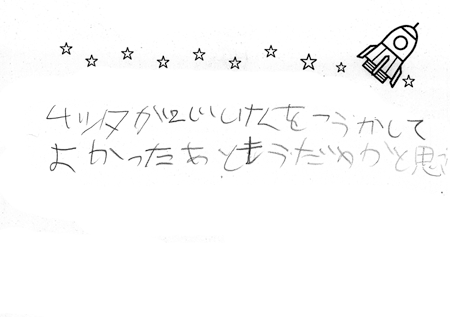 ケツタが2じしけんをつうかして
よかったあともうだめかと思